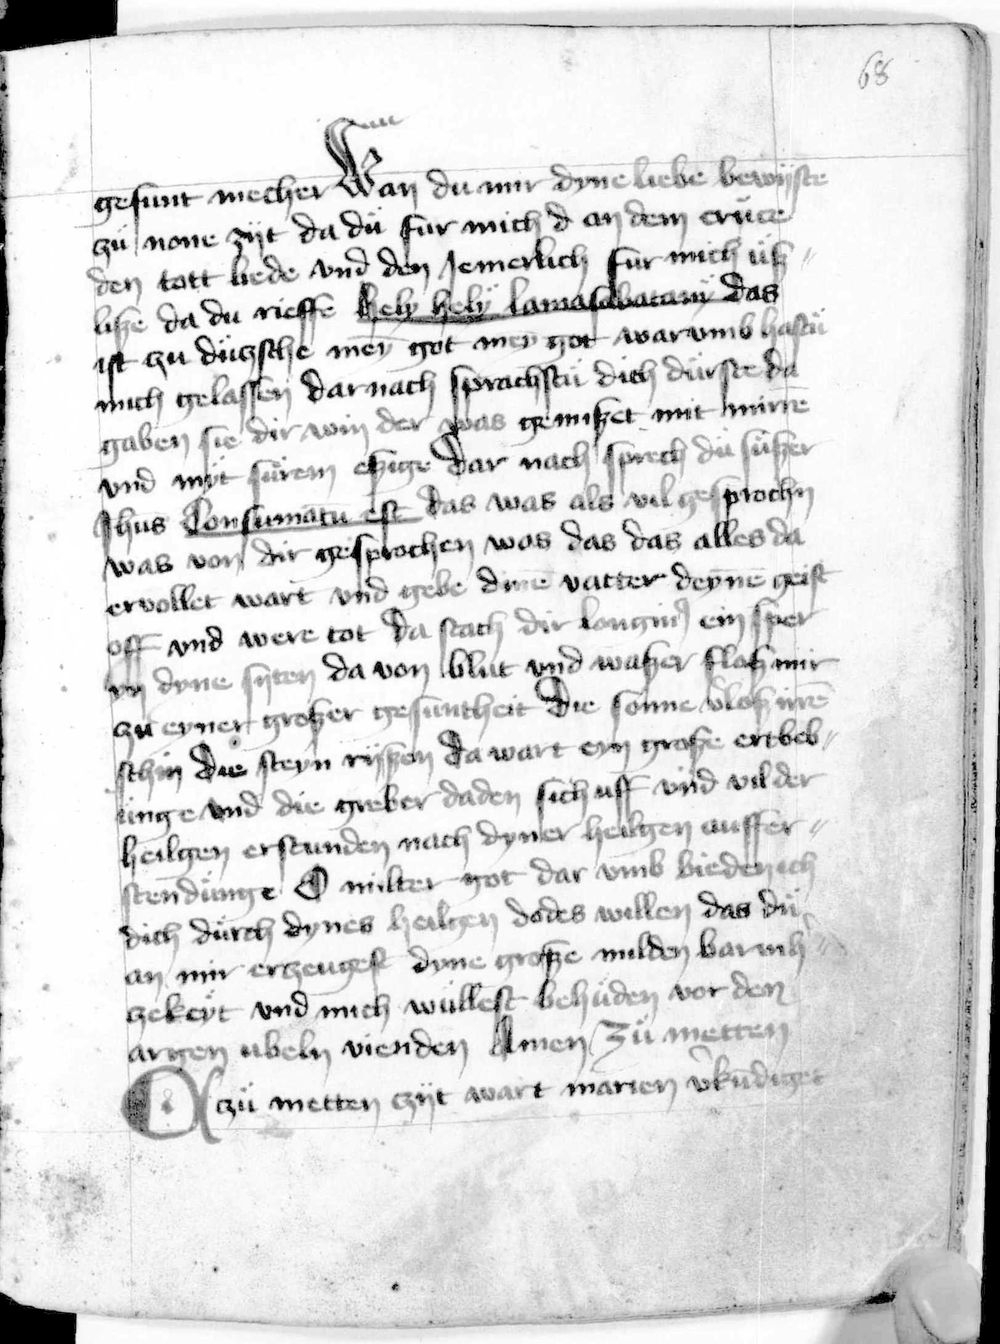 68
gesunt mecher Wan du mir dyne liebe bewÿste
zü none zÿt da dü fur mich d an dem crüce
den tott liede vnd den Jemerlich fur mich üß
liße da du rieffe hely helÿ lamasabatanÿ das
ist zu düczsche mey̅ got mey̅ got warvmb hastü
mich gelassen dar nach sprachstü dich dürste da
gaben sie dir win der was gemißet mit mirre
vnd myt sürem eßige Dar nach sprech dü süßer
Jhus Consumatu̅ est das was als vil gesprochn
was von dir gesprochen was das das alles da
ervollet wart vnd gebe dine̅ vatter deyne̅ geist
off vnd were tot Da stach dir longinꝰ ein sper
yn dyne sÿten da von blüt vnd waßer floß mir
zu eyner großer gesuntheit Die sonne vloß irre̅
schin Die steyn rÿßen Da wart eyn große ertbeb
ünge vnd die greber daden sich uff vnd vil der
heilgen erstunden nach dyner heilgen auffer
stendünge O milter got dar vmb bieden ich
dich dürch dynes heilgen dodes willen das dü
an mir erzeugest dyne große milden barmh
zekeÿt vnd mich wüllest behüden vor den
argen ubeln vienden Amen Zü metten
O czü metten czÿt wart marien vku̅diget